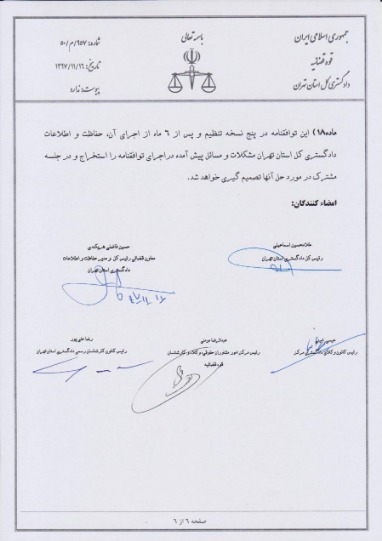 جمهوری اسلامی ایران
قوه قضائیه
دادگستری کل استان تهران
باسمه تعالی
شماره: ۵۰/م/۶۵۷
تاریخ: ۱۳۹۷/۱۱/۱۶
پیوست: ندارد
ماده۱۸) این توافقنامه در پنج نسخه تنظیم و پس از ۶ ماه از اجرای آن، حفاظت و اطلاعات
دادگستری کل استان تهران مشکلات و مسائل پیش آمده دراجرای توافقنامه را استخراج و در جلسه
مشترک در مورد حل آنها تصمیم گیری خواهد شد.
امضاء کنندگان:
غلامحسین اسماعیلی
رئیس کل دادگستری استان تهران
حسین فاضلی هریکندی
معاون قضائی رئیس کل و مدیر حفاظت و اطلاعات
دادگستری استان تهران
عیسی
رئیس کانون وکلای دادگستری مرکز
عبدالرضا
رئیس مرکز امور مشاوران حقوقی، وکلا و کارشناسان
قوه قضائیه
رضا علی پور
رئیس کانون کارشناسان رسمی دادگستری استان تهران
صفحه ۶ از ۶